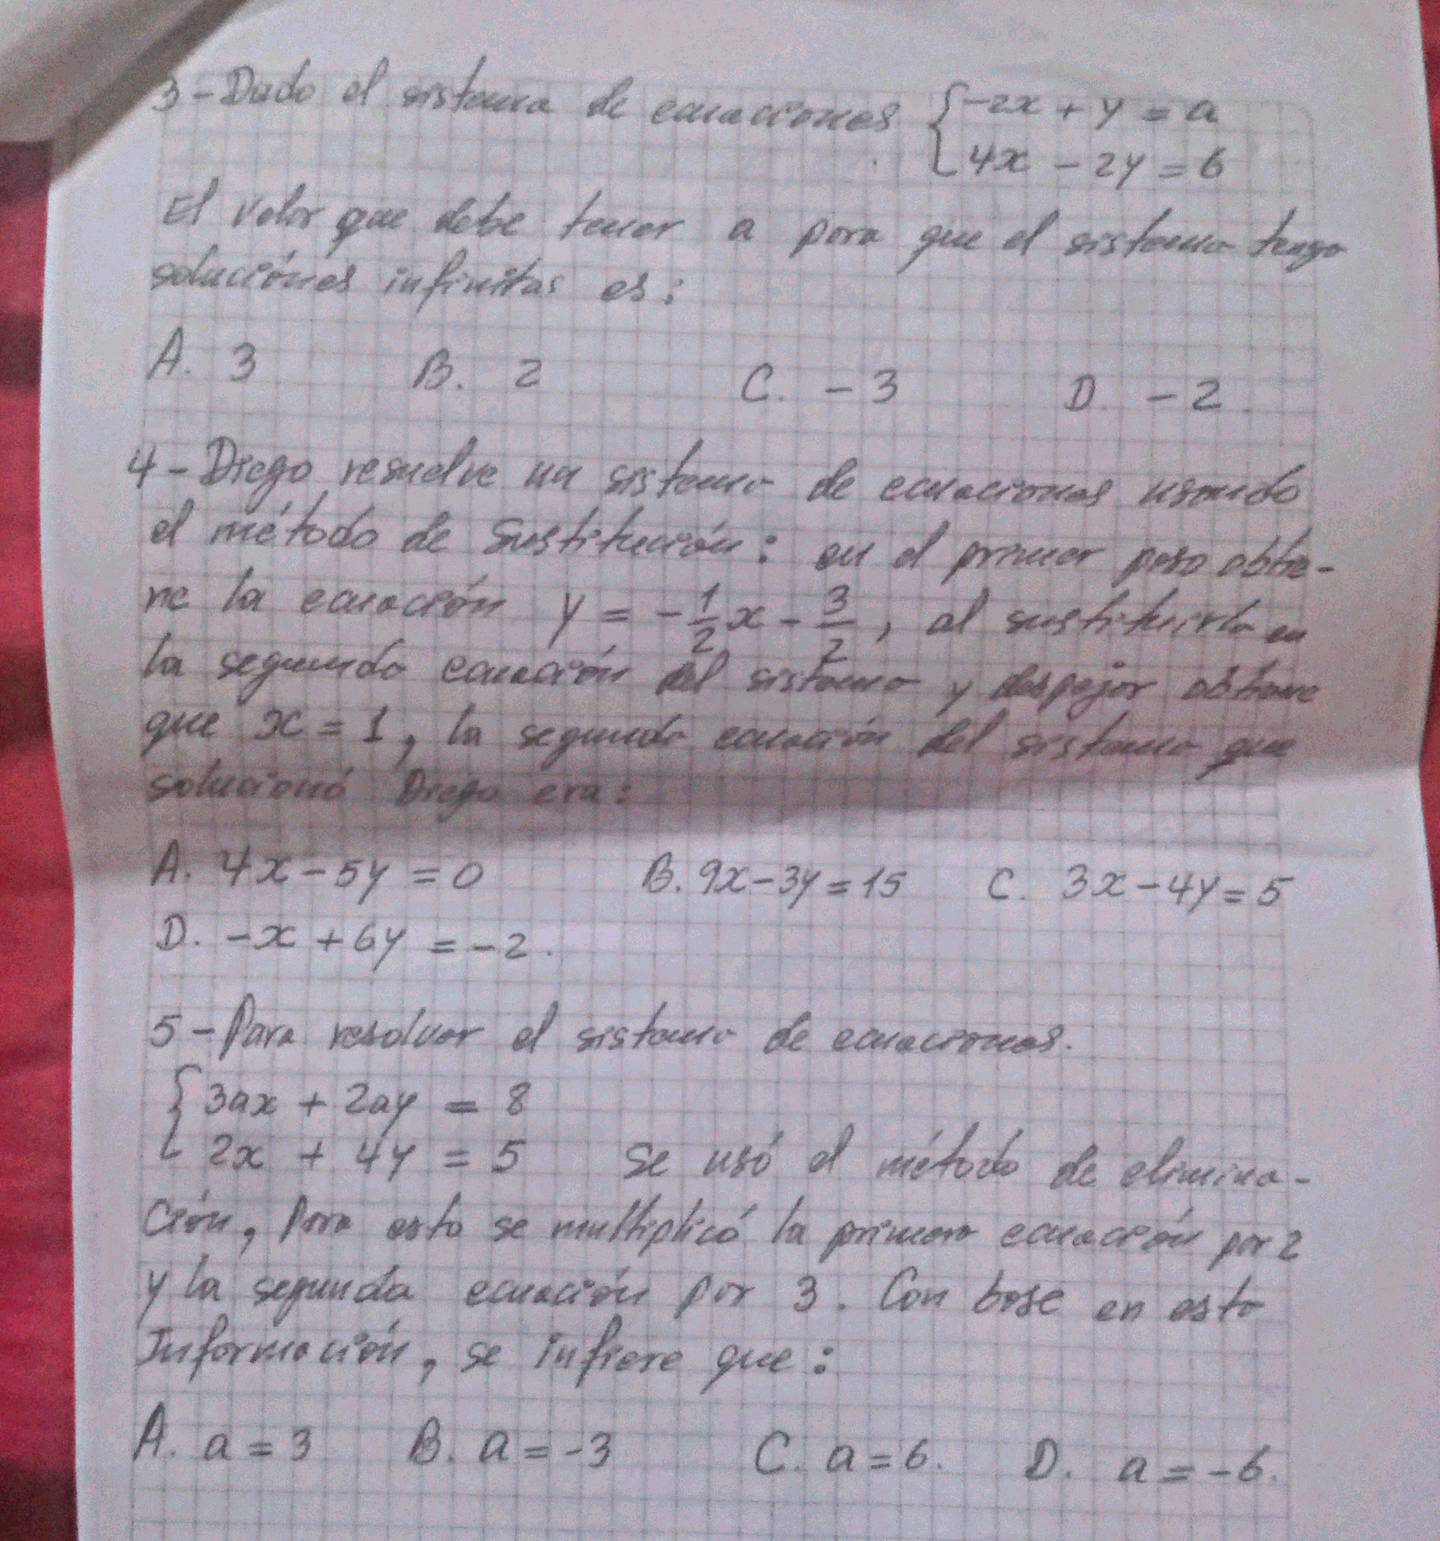 3-Dado el sistema de ecuaciones { -2x + y = a
4x - 2y = 6
El valor que debe tener a para que el sistema tenga
soluciónes infinitas es:
A. 3 B. 2 C. -3 D. -2.
4-Diego resuelve un sistema de ecuaciones usando
el método de sustitución: en el primer paso obtie-
ne la ecuación y = -1/2x - 3/2, al sustituirla en
la segunda ecuación del sistema y despejar obtiene
que x = 1, la segunda ecuación del sistema que
solucionó Diego era:
A. 4x - 5y = 0 B. 9x - 3y = 15 C. 3x - 4y = 5
D. -x + 6y = -2.
5-Para resolver el sistema de ecuaciones.
{ 3ax + 2ay = 8
2x + 4y = 5 se usó el método de elimina-
ción, para esto se multiplicó la primera ecuación por 2
y la segunda ecuación por 3. Con base en esta
Información, se infiere que:
A. a = 3 B. a = -3 C. a = 6. D. a = -6.